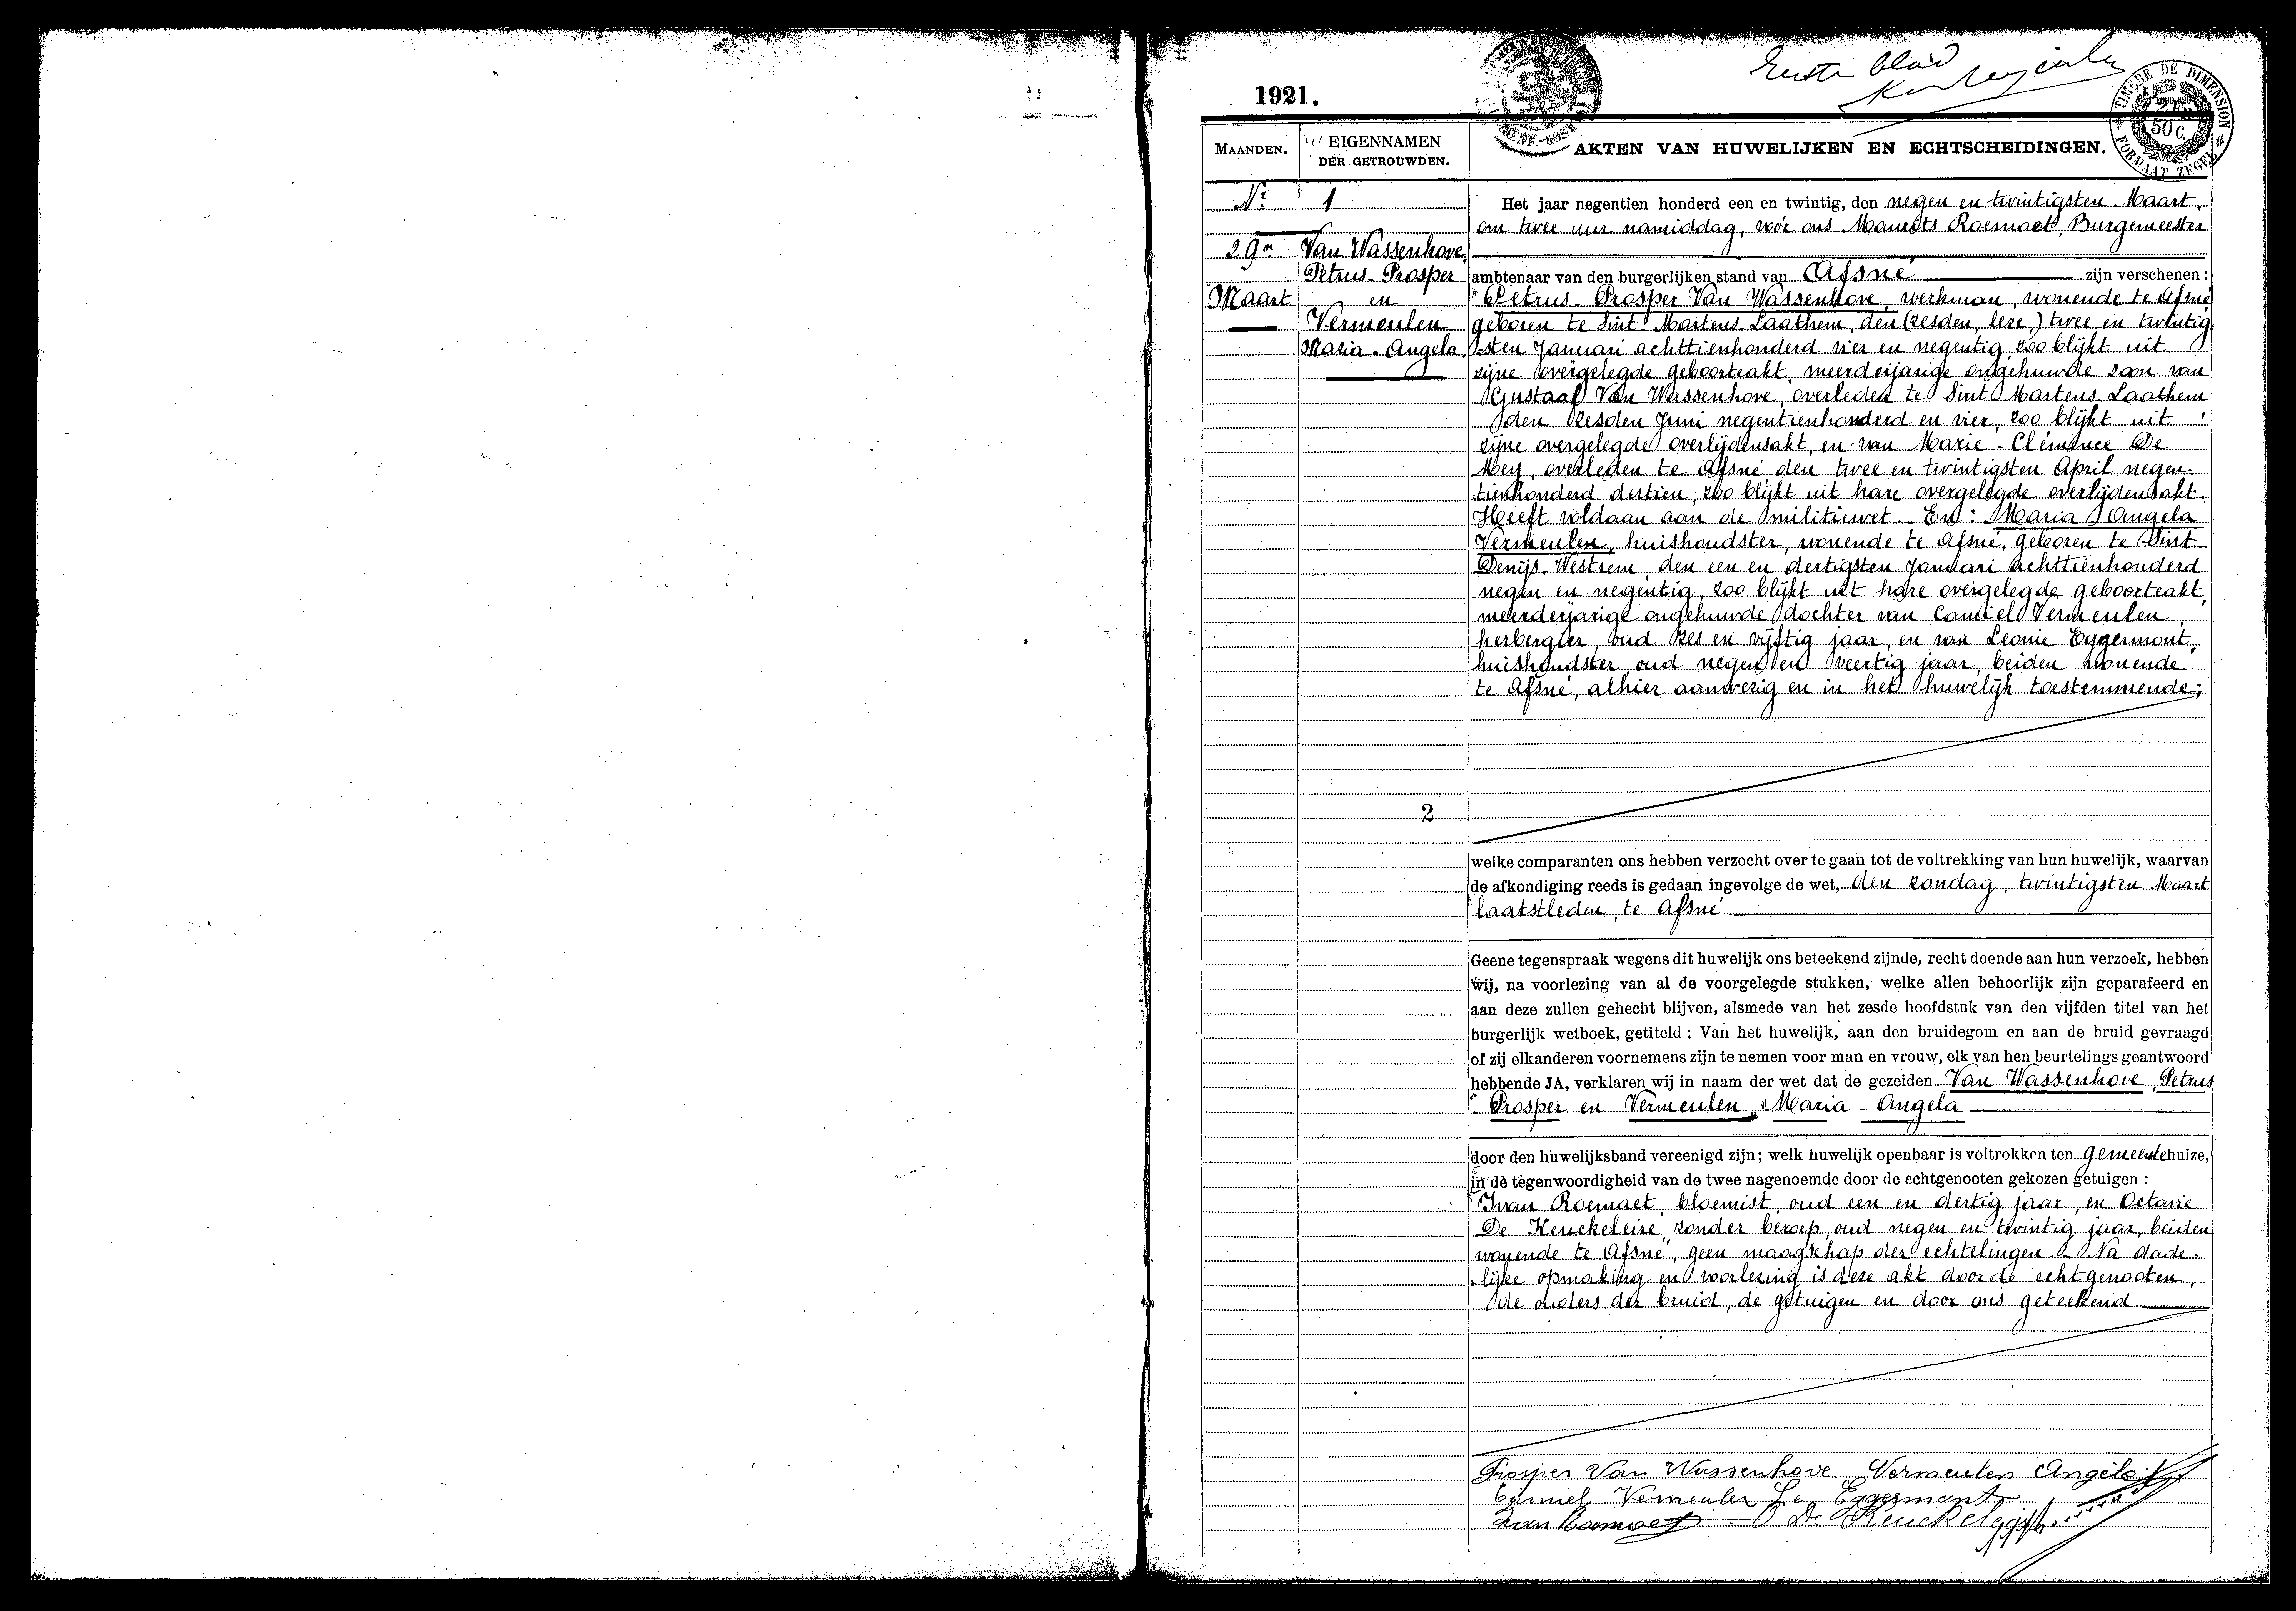 1921.
Eerste blad
TIMBRE DE DIMENSION
50 C.
FORMAAT ZEGEL
MAANDEN.
EIGENNAMEN
DER GETROUWDEN.
AKTEN VAN HUWELIJKEN EN ECHTSCHEIDINGEN.
Nr 1
29n
Maart
Van Wassenhove
Petrus-Prosper
en
Vermeulen
Maria-Angela.
2
Het jaar negentien honderd een en twintig, den negen en twintigsten Maart,
om twee uur namiddag, voor ons Maurits Roemaet, Burgemeester
ambtenaar van den burgerlijken stand van Afsné zijn verschenen :
Petrus-Prosper Van Wassenhove, werkman, wonende te Afsné
geboren te Sint-Martens-Laathem, den (zesden, leze,) twee en twintig
sten Januari achttienhonderd vier en negentig, zoo blijkt uit
zijne overgelegde geboorteakt, meerderjarige ongehuwde zoon van
Gustaaf Van Wassenhove, overleden te Sint Martens-Laathem
den zesden Juni negentienhonderd en vier, zoo blijkt uit
zijne overgelegde overlijdensakt, en van Marie-Clémence De
Mey, overleden te Afsné den twee en twintigsten April negen-
tienhonderd dertien, zoo blijkt uit hare overgelegde overlijdensakt.
Heeft voldaan aan de militiewet. En: Maria Angela
Vermeulen, huishoudster, wonende te Afsné, geboren te Sint
Denijs-Westrem, den een en dertigsten Januari achttienhonderd
negen en negentig, zoo blijkt uit hare overgelegde geboorteakt,
meerderjarige ongehuwde dochter van Camiel Vermeulen,
herbergier, oud zes en vijftig jaar, en van Leonie Eggermont,
huishoudster oud negen en veertig jaar, beiden wonende
te Afsné, alhier aanwezig en in het huwelijk toestemmende;
welke comparanten ons hebben verzocht over te gaan tot de voltrekking van hun huwelijk, waarvan
de afkondiging reeds is gedaan ingevolge de wet, den zondag, twintigsten Maart
laatstleden, te Afsné.
Geene tegenspraak wegens dit huwelijk ons beteekend zijnde, recht doende aan hun verzoek, hebben
wij, na voorlezing van al de voorgelegde stukken, welke allen behoorlijk zijn geparafeerd en
aan deze zullen gehecht blijven, alsmede van het zesde hoofdstuk van den vijfden titel van het
burgerlijk wetboek, getiteld : Van het huwelijk, aan den bruidegom en aan de bruid gevraagd
of zij elkanderen voornemens zijn te nemen voor man en vrouw, elk van hen beurtelings geantwoord
hebbende JA, verklaren wij in naam der wet dat de gezeiden Van Wassenhove, Petrus
Prosper en Vermeulen, Maria-Angela
door den huwelijksband vereenigd zijn; welk huwelijk openbaar is voltrokken ten gemeentehuize,
in de tegenwoordigheid van de twee nagenoemde door de echtgenooten gekozen getuigen :
Ivan Roemaet, bloemist, oud een en dertig jaar, en Octavie
De Keuckeleire, zonder beroep, oud negen en twintig jaar, beiden
wonende te Afsné, geen maagschap der echtelingen - Na dade-
lijke opmaking en voorlezing is deze akt door de echtgenooten,
de ouders der bruid, de getuigen en door ons geteekend.
Prosper Van Wassenhove Vermeulen Angela
Camiel Vermeulen Le Eggermont
Ivan Roemaet O De Keuckel